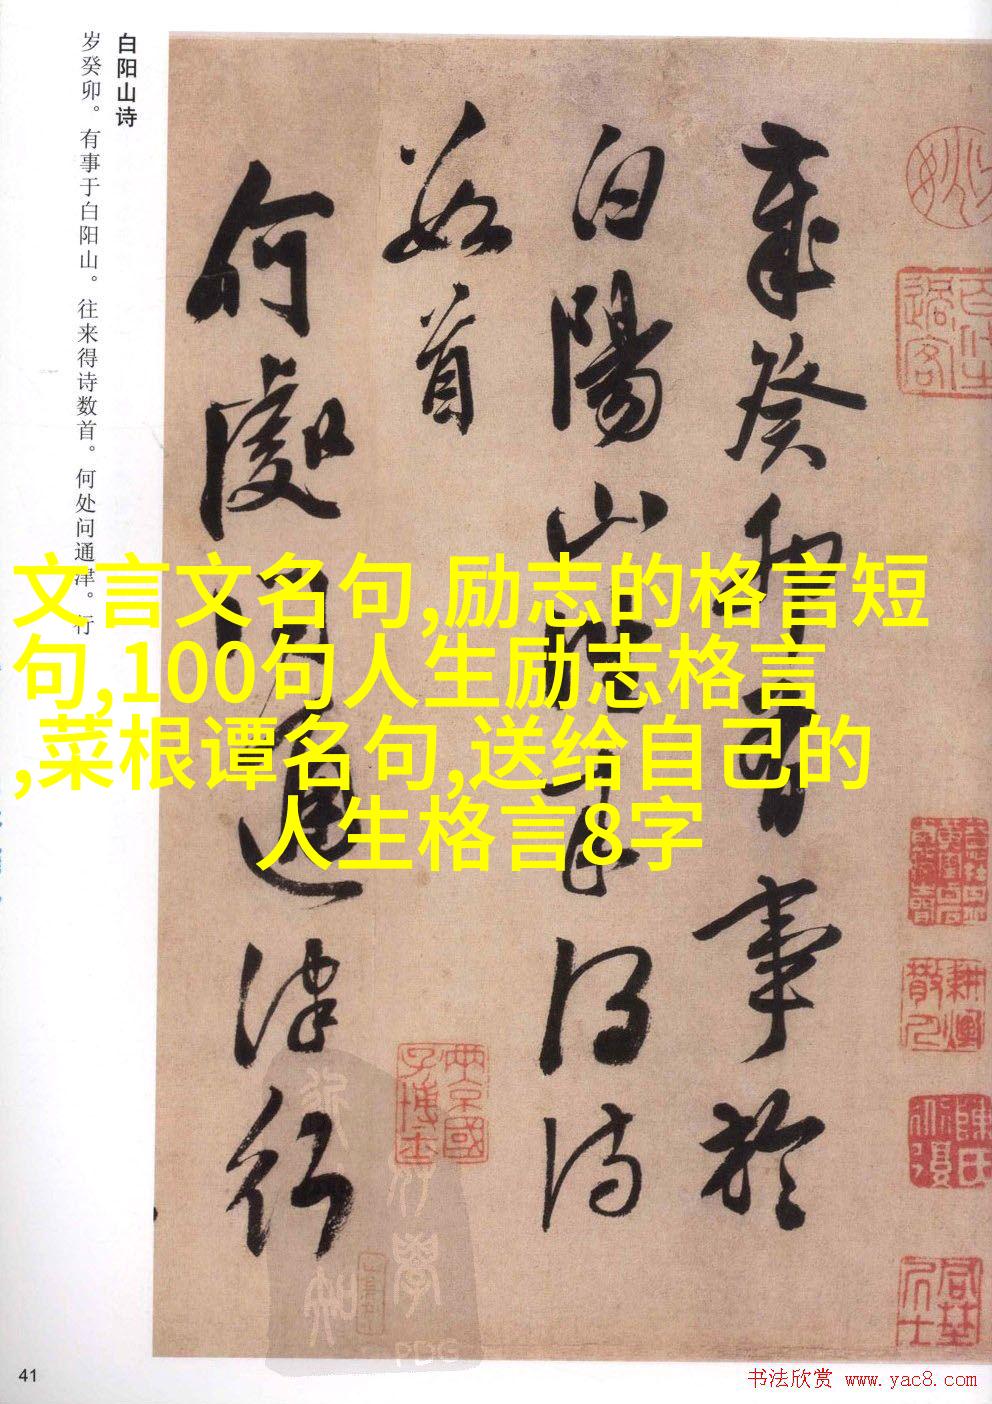 白阳山诗
岁癸卯。有事于白阳山。往来得诗数首。何处问通津。行
歲癸卯有事於
白陽山往來得诗
数首
何處问通津行
文言文名句,励志的格言短
句,100句人生励志格言
,菜根谭名句,送给自己的
人生格言8字
41
书法欣赏 www.yac8.com